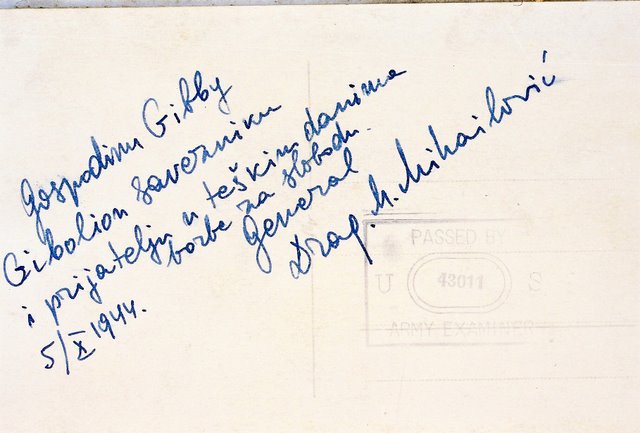 Gospodinu Gibby
Gibalion savezniku
i prijatelju u teškim danima
borbe za slobodu.
General
Drag. M. Mihailović
5/X 1944.
PASSED BY
U 43011 S
ARMY EXAMINER